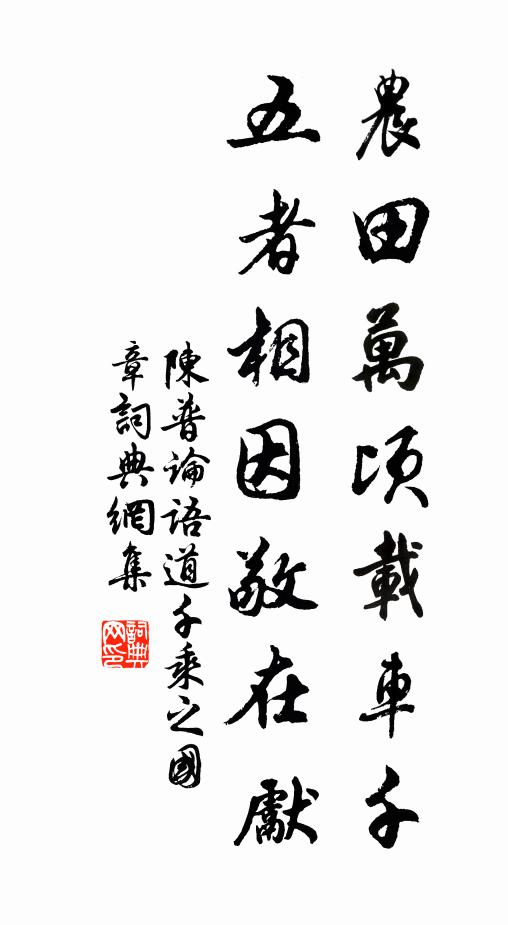 農田萬頃載車千
五者相因敬在獻
陳普論語道千乘之國
章詞典網集
詞典
网印